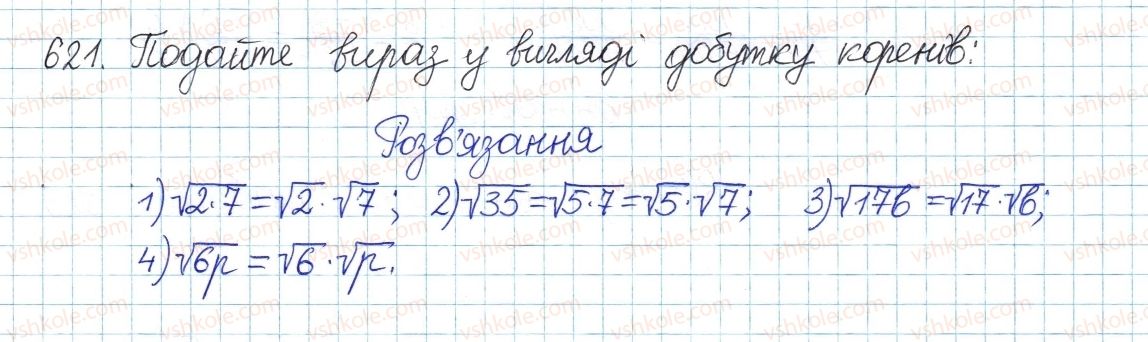 621. Подайте вираз у вигляді добутку коренів:
Розв'язання
1) √2·7 = √2·√7; 2) √35 = √5·7 = √5·√7; 3) √17b = √17·√b;
4) √6p = √6·√p.